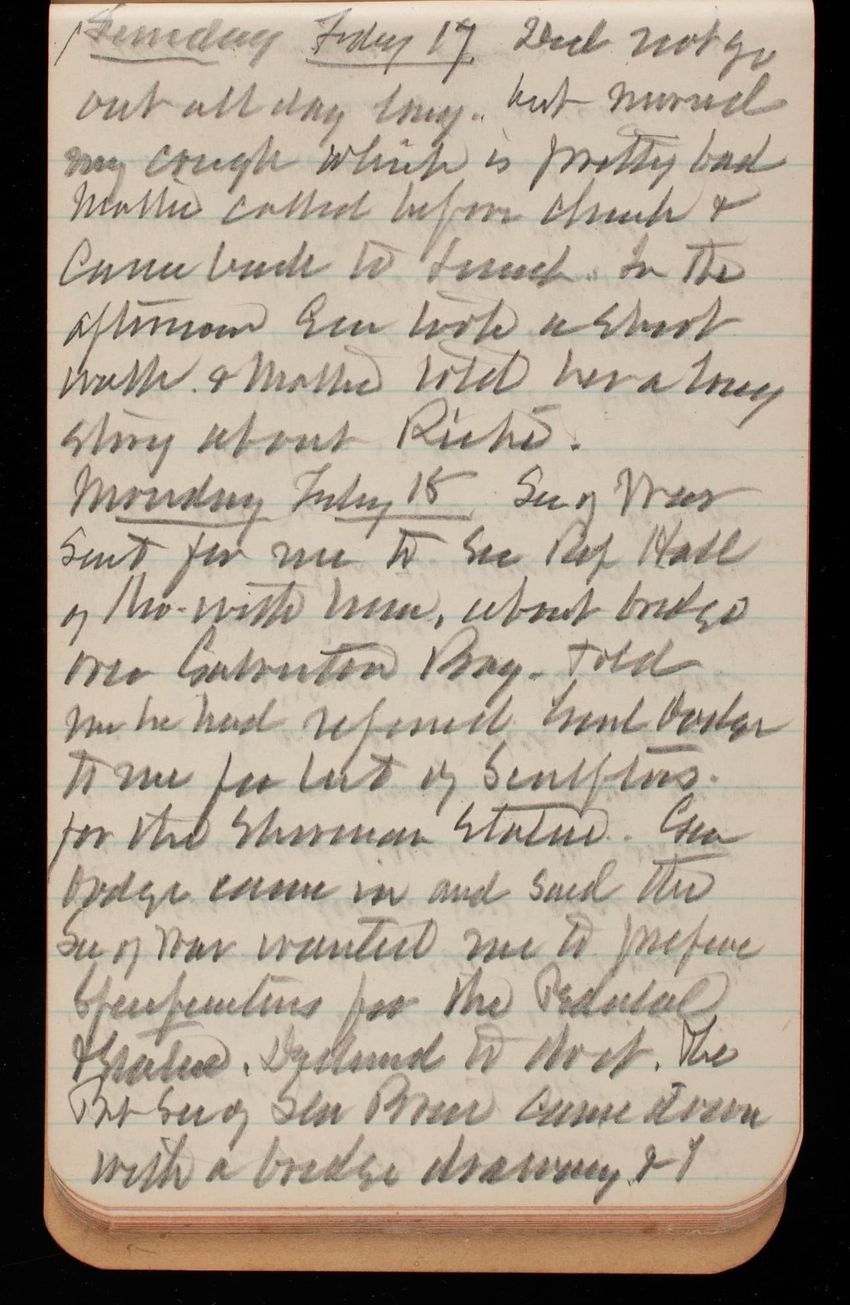 Sunday Feby 17. Did not go
out all day long. but nursed
my cough which is pretty bad
Mollie called before church &
Came back to lunch. In the
afternoon Gen took a short
walk. & Mollie told her a long
story about Riché.
Monday Feby 18 Sec of War
Sent for me to See Rep Hall
of Mo. with him, about bridge
over Galveston Bay. Told
me he had referred Genl Dodge
to me for list of Sculptors.
for the Sherman Statue. Gen
Dodge came in and said the
Sec of War wanted me to prepare
Specifications for the Pedestal
& Statue. Declined to do it. The
Pvt Sec of Sen Brice came down
with a bridge drawing & I